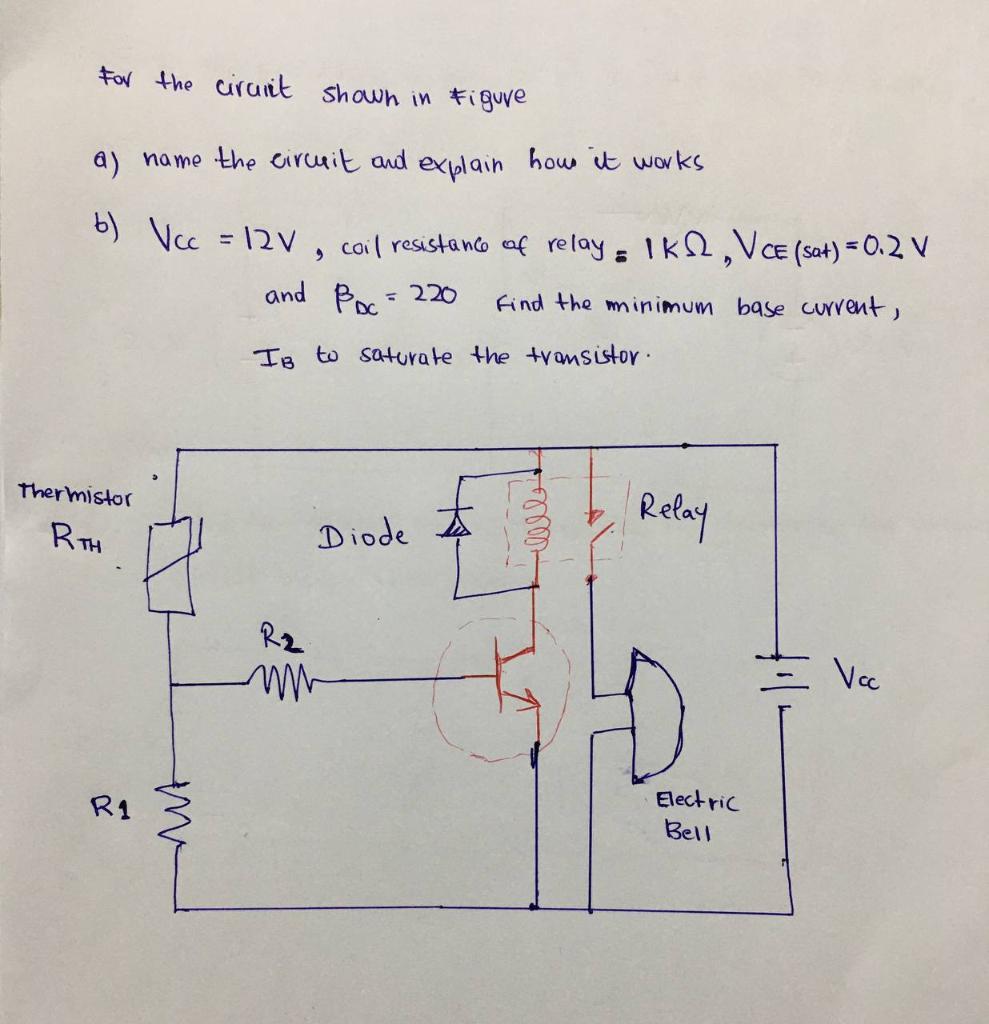 For the circuit shown in Figure
a) name the circuit and explain how it works
b) Vcc = 12V, coil resistance of relay = 1kΩ, VCE (sat) = 0.2 V
and βDC = 220 Find the minimum base current,
IB to saturate the transistor.
Thermistor
RTH
Diode
Relay
R2
Vcc
R1
Electric
Bell